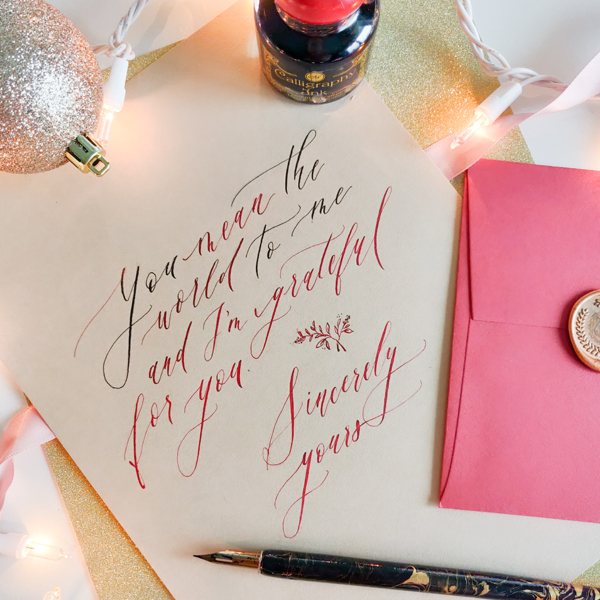 Calligraphy
Ink
You mean the
world to me
and I'm grateful
for you.
Sincerely
yours